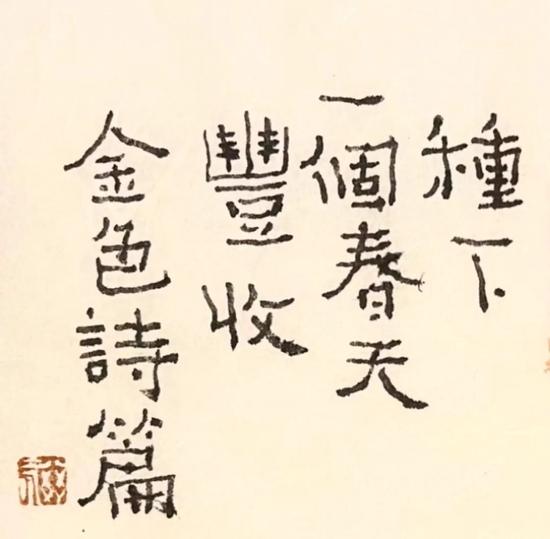 種下
一個春天
豐收
金色詩篇